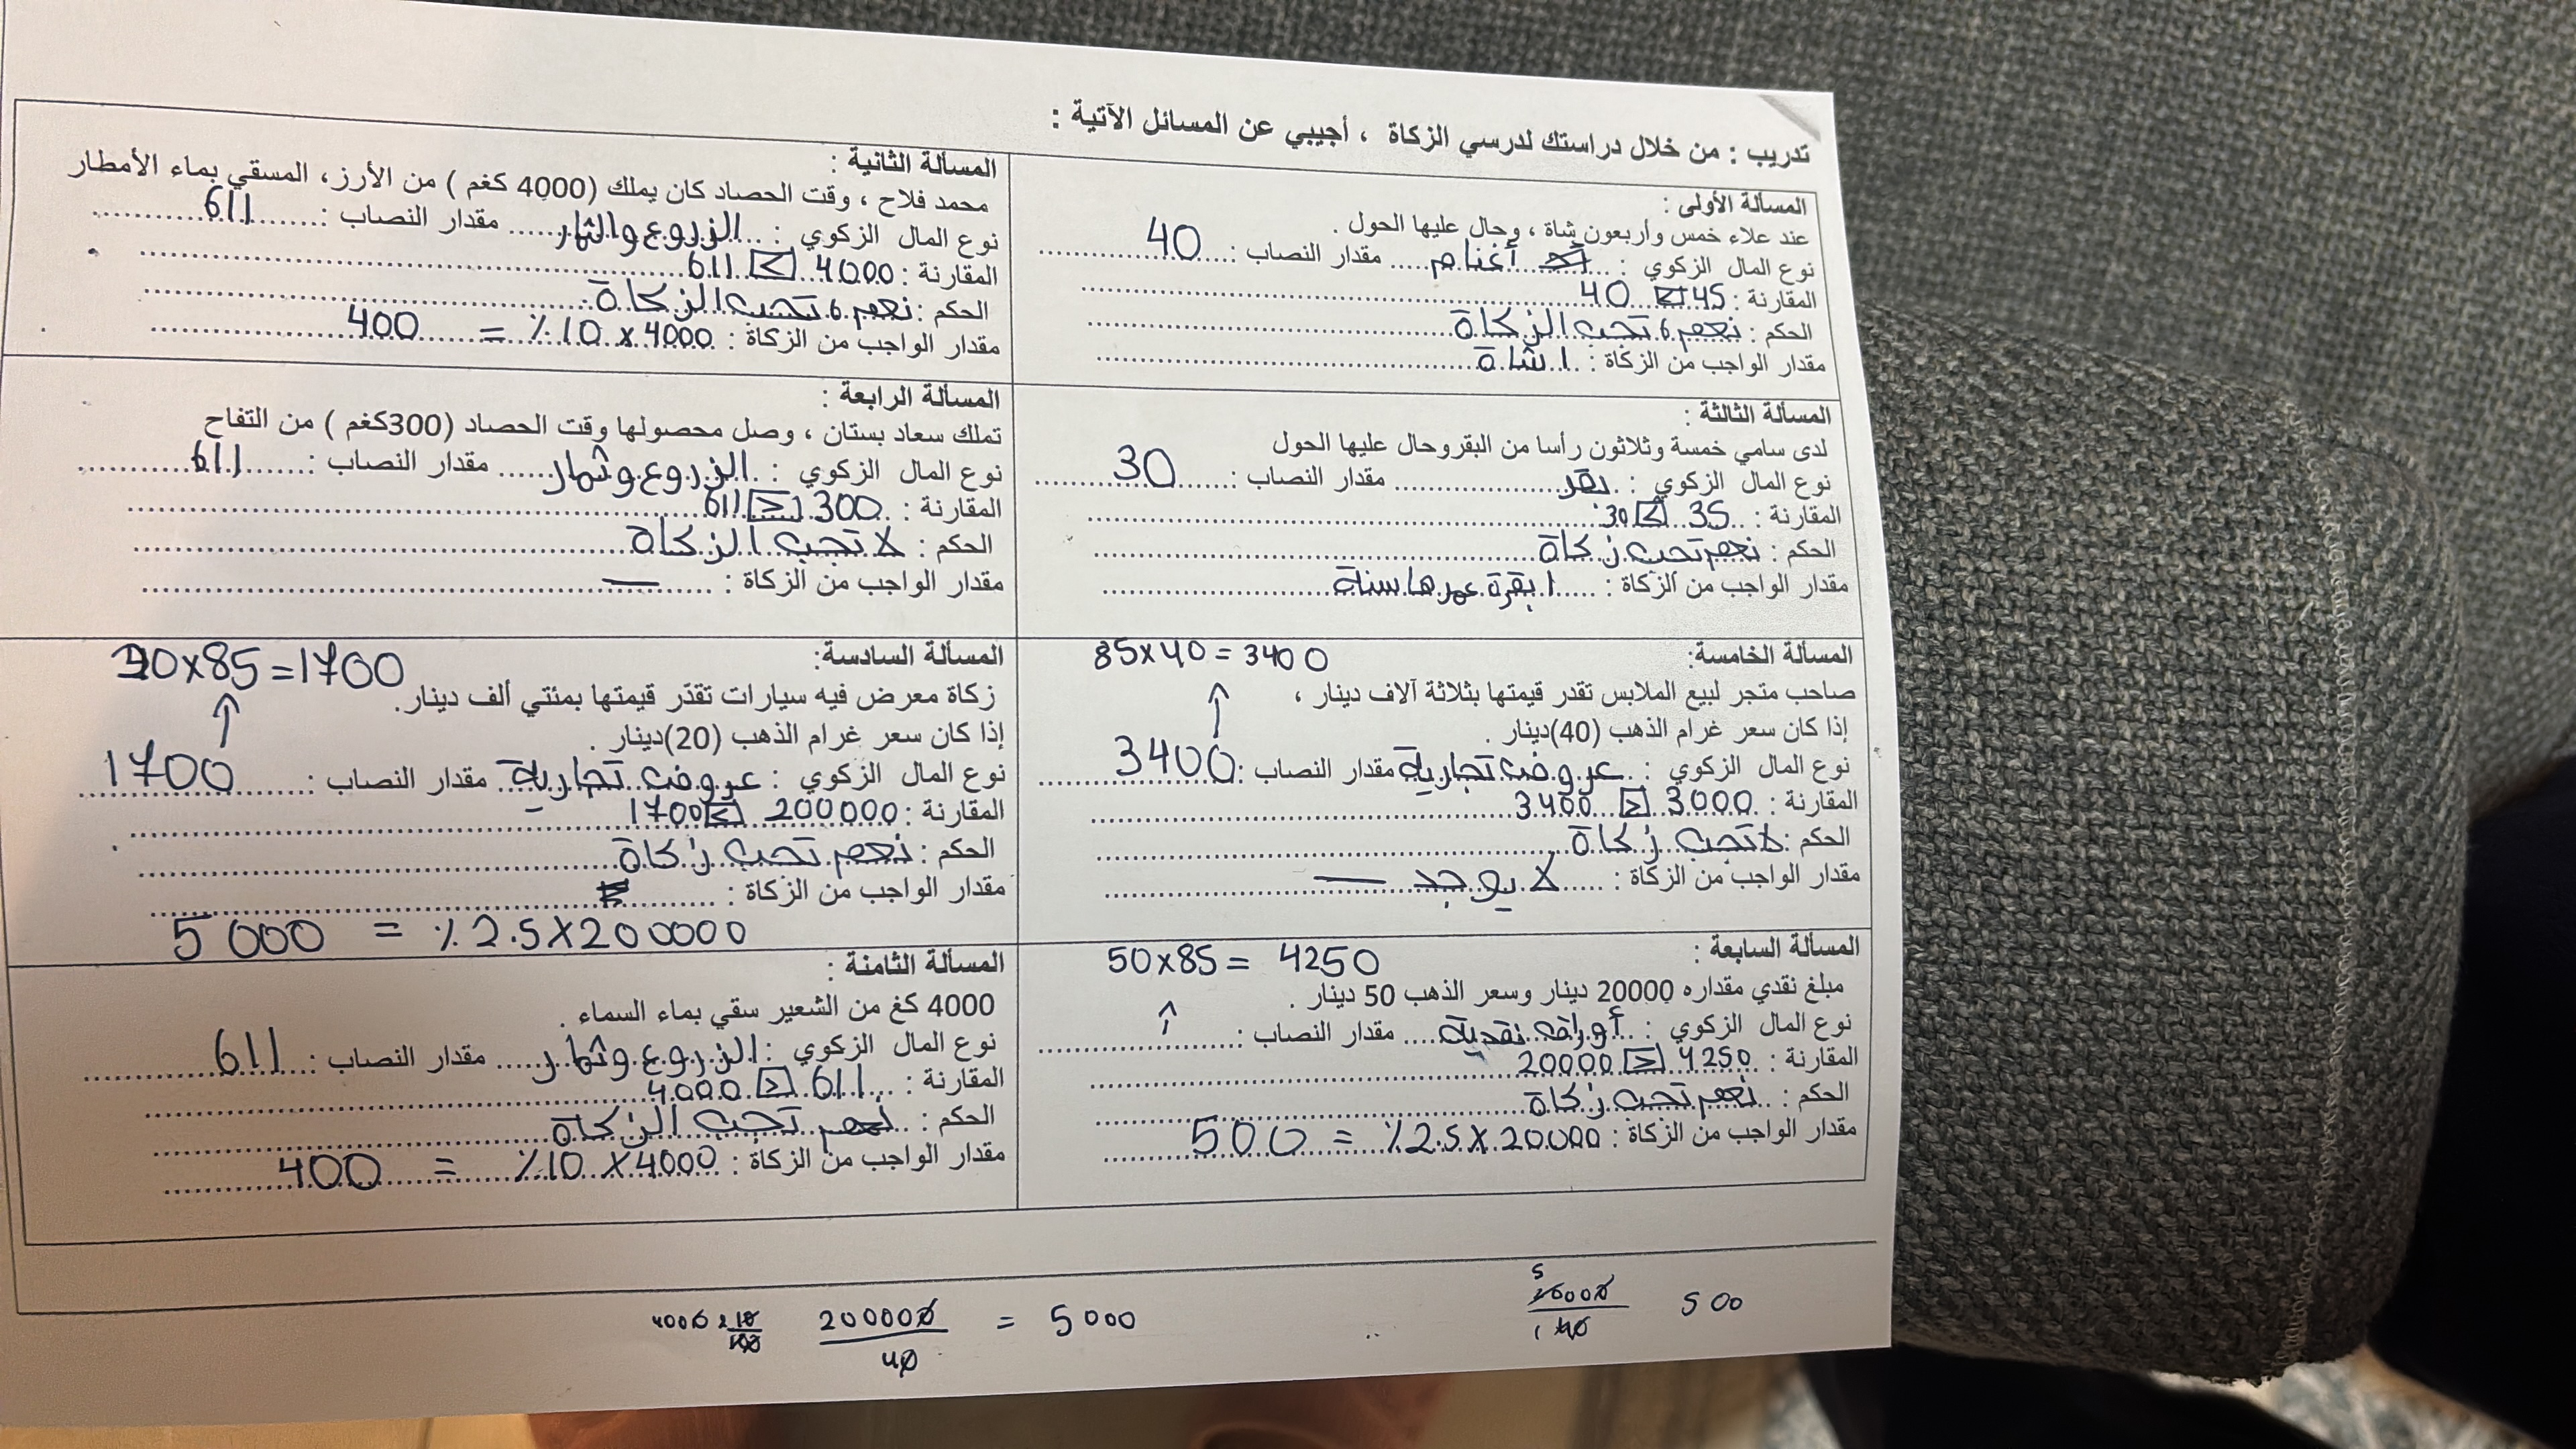 تدريب : من خلال دراستك لدرسي الزكاة ، أجيبي عن المسائل الآتية :
المسألة الأولى :
عند علاء خمس وأربعون شاة ، وحال عليها الحول .
نوع المال الزكوي : أغنام مقدار النصاب : 40
المقارنة : 45 > 40
الحكم : نعم ، تجب الزكاة
مقدار الواجب من الزكاة : 1 شاة
المسألة الثانية :
محمد فلاح ، وقت الحصاد كان يملك (4000 كغم ) من الأرز، المسقي بماء الأمطار
نوع المال الزكوي : الزروع والثمار مقدار النصاب : 611
المقارنة : 4000 > 611
الحكم : نعم ، تجب الزكاة
مقدار الواجب من الزكاة : 4000 × 10 % = 400
المسألة الثالثة :
لدى سامي خمسة وثلاثون رأسا من البقروحال عليها الحول
نوع المال الزكوي : بقر مقدار النصاب : 30
المقارنة : 35 > 30
الحكم : نعم تجب زكاة
مقدار الواجب من الزكاة : 1 بقرة عمرها سنة
المسألة الرابعة :
تملك سعاد بستان ، وصل محصولها وقت الحصاد (300كغم ) من التفاح
نوع المال الزكوي : الزروع وثمار مقدار النصاب : 611
المقارنة : 300 < 611
الحكم : لا تجب الزكاة
مقدار الواجب من الزكاة : —
المسألة الخامسة: 85x40 = 3400
صاحب متجر لبيع الملابس تقدر قيمتها بثلاثة آلاف دينار ،
إذا كان سعر غرام الذهب (40)دينار .
نوع المال الزكوي : عروض تجارية مقدار النصاب : 3400
المقارنة : 3000 < 3400
الحكم : لا تجب زكاة
مقدار الواجب من الزكاة : لا يوجد —
المسألة السادسة: 20x85=1700
زكاة معرض فيه سيارات تقدّر قيمتها بمئتي ألف دينار.
إذا كان سعر غرام الذهب (20)دينار .
نوع المال الزكوي : عروض تجارية مقدار النصاب : 1700
المقارنة : 200000 > 1700
الحكم : نعم تجب زكاة
مقدار الواجب من الزكاة :
200000 × 2.5 % = 5000
المسألة السابعة : 50x85 = 4250
مبلغ نقدي مقداره 20000 دينار وسعر الذهب 50 دينار .
نوع المال الزكوي : أوراق نقدية مقدار النصاب :
المقارنة : 4250 < 20000
الحكم : نعم تجب زكاة
مقدار الواجب من الزكاة : 20000 × 2.5 % = 500
المسألة الثامنة :
4000 كغ من الشعير سقي بماء السماء .
نوع المال الزكوي : الزروع وثمار مقدار النصاب : 611
المقارنة : 611 < 4000
الحكم : نعم تجب الزكاة
مقدار الواجب من الزكاة : 4000 × 10 % = 400
200000 / 40 = 5000
500